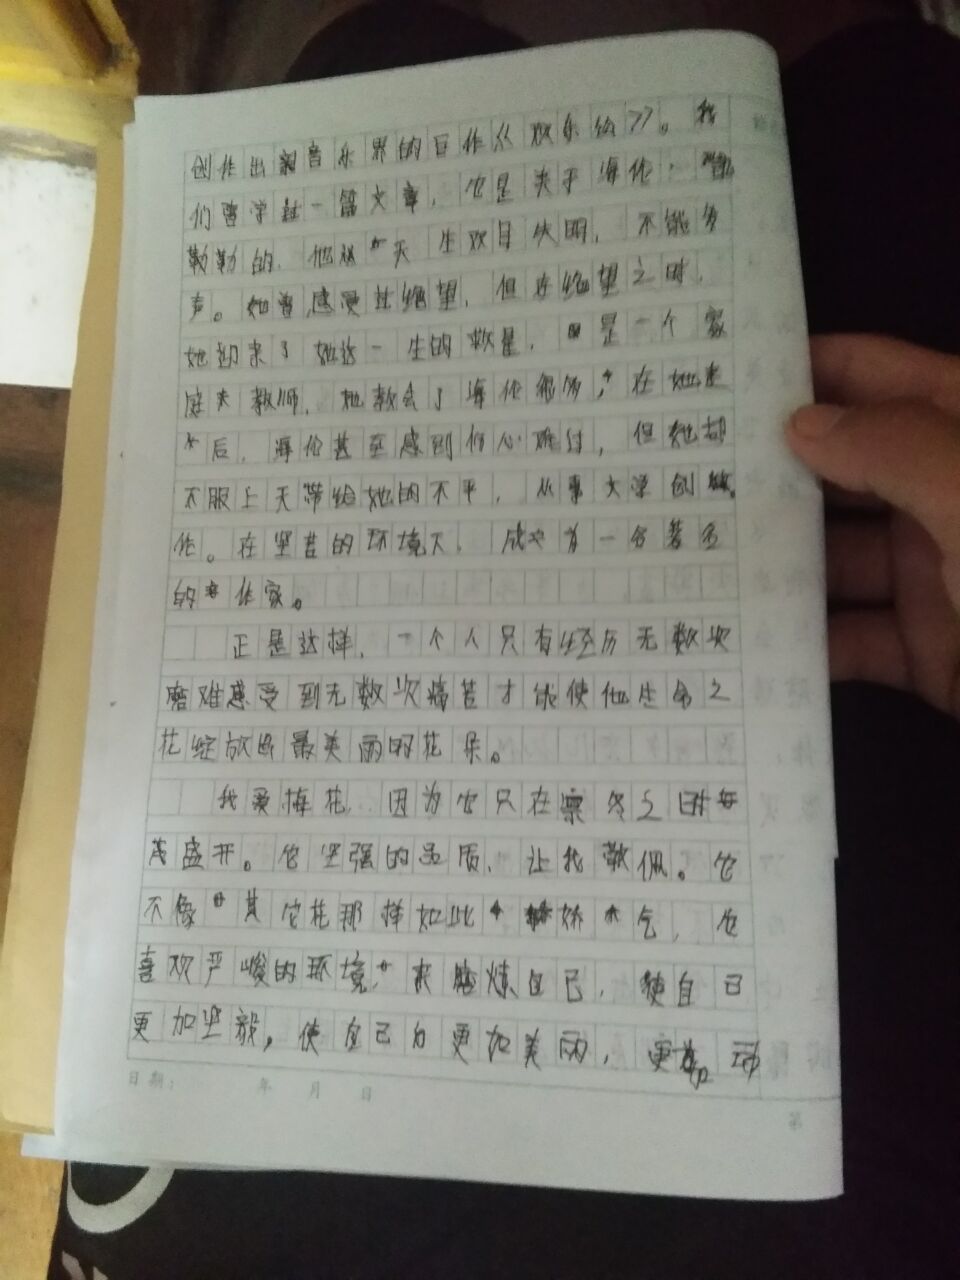 创作出音乐界的巨作《欢乐给》。我
们曾学过一篇文章，它是关于海伦·
勒勒的，他从天生双目失明，不能多
声。她曾感受过绝望，但在绝望之时，
她却来了她这一生的救星，是一个家
庭教师，她教会了海伦很多，在她走
后，海伦甚至感到伤心难过，但她却
不服上天带给她的不平，从事文学创
作。在坚苦的环境下，成为一名著名
的作家。
正是这样，一个人只有经历无数次
磨难感受到无数次痛苦才能使他生命之
花绽放出最美丽的花朵。
我爱梅花，因为它只在寒冬之时
茂盛开。它坚强的品质，让我敬佩。它
不像其它花那样如此娇气，它
喜欢严峻的环境，来磨炼自己，使自己
更加坚毅，使自己更加美丽，更加动
日期： 年 月 日
第